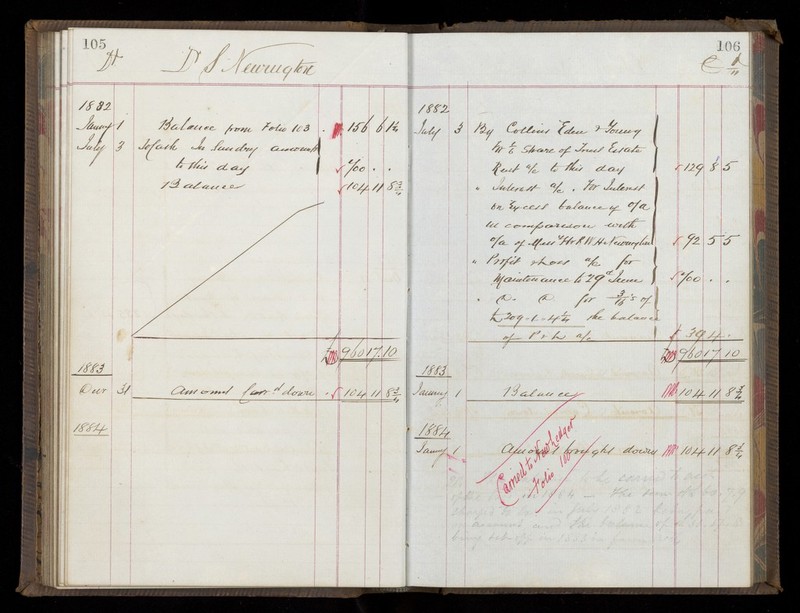 105
Dr
Dr S Newington
1882
January 1 Balance from Folio 103 156 6 1½
July 3 To Cash In Sundry amounts
to this day 700 . .
Balance 104 11 8¾
£ 960 17 10
1883
Decr 31 Amount Carrd down 104 11 8¾
1884
106
Cr
1882
July 3 By Collins Eden & Young
for Share of Trust Estate
Rent a/c to this day 129 8 5
" Interest a/c . For Interest
on Excess balance of o/a
in comparison with
o/a of Messrs H & R W H Newington 92 5 5
" Profit & Loss a/c for
Maintenance to 29th June 700 . .
" Do Do for 3/16's of
£209-1-4¼ the balance
of P & L a/c 39 4 .
£ 960 17 10
1883
January 1 Balance 104 11 8¾
1884
January 1 Amount brought down 104 11 8¾
Carried to New Ledger
Folio